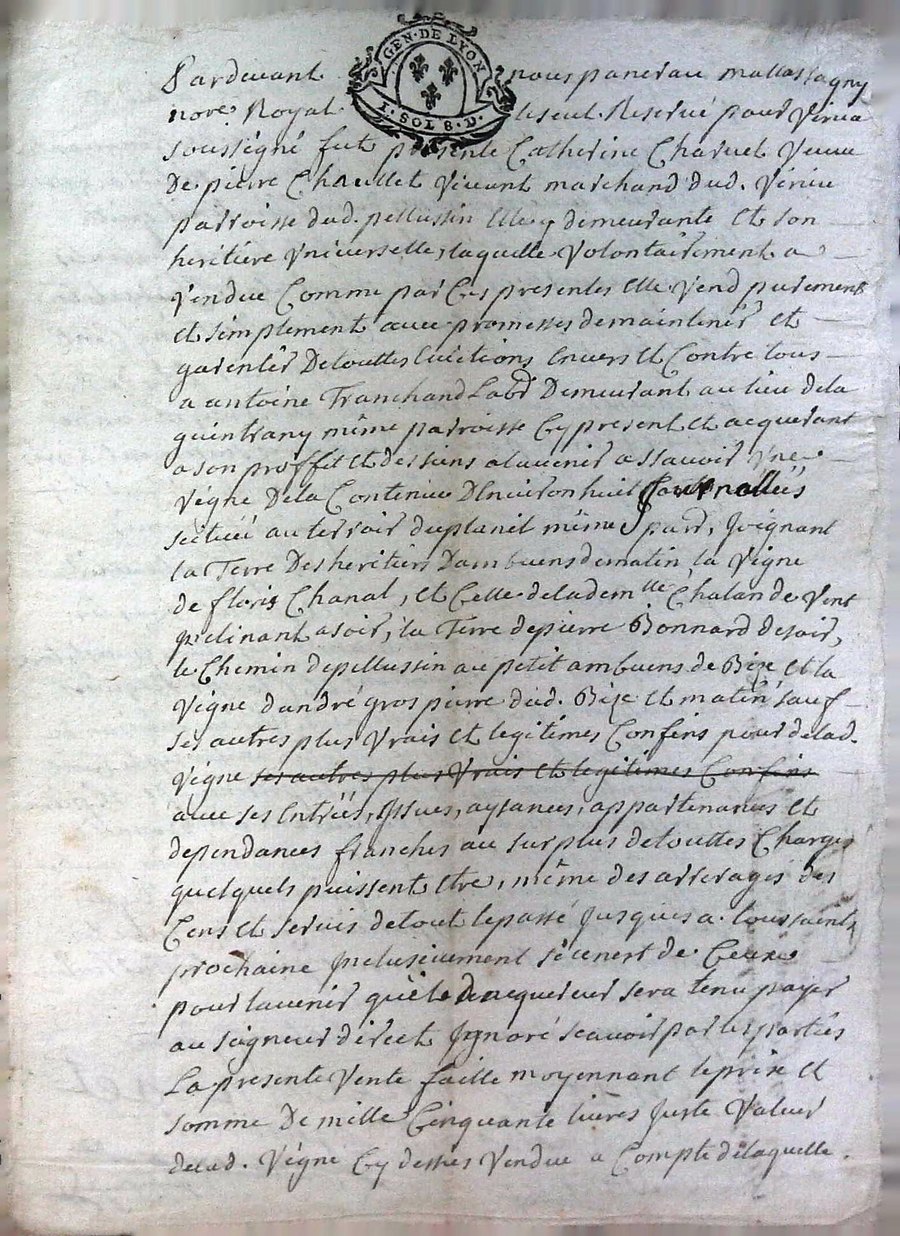 GEN. DE LYON
1. SOL 8. D.
Pardevant nous pancrau mallassagny
nore Royal le seul Reservé pour Virieu
sousségné fut présente Catherine Charuet Veuve
De pierre Chaullet Vivant marchand dud. Virieu
parroisse dud. pellussin Elle y demeurante et son
heritiére Vniverselle, laquelle Volontairement a
Vendue Comme par Ces presentes elle Vend purement
et simplement avec promesses de maintenir et
garentir De touttes Evictions Envers et Contre tous
a antoine Tranchand Labr Demeurant au lieu de la
guintrany même parroisse Cy present et acquerant
a son proffit et des siens a l'avenir assavoir Vne
Végne De la Contenue D'Environ huit Journallées
scituée au terroir du planil même parr, Joignant
la Terre Des heritiers D'ambuens de matin, la Vigne
de floris Chanal, et Celle de la demlle Chalan de Vent
Jnclinant a soir, la Terre de pierre Bonnard de soir,
le Chemin de pellussin au petit ambuens de Bize et la
Vigne d'andré gros pierre dud. Bize et matin, sauf
ses autres plus Vrais et legitimes Confins pour de lad.
Végne ses autres plus Vrais et legitimes Confins
avec ses Entrées, Jssues, aysances, appartenances et
dependances franches au surplus de touttes Charges
quelquels puissent etre, même des arrerages des
Cens et servis de tout le passé Jusques a toussaints
prochaine Jnclusivement sécenert de Ceux
pour l'avenir què le acquereur sera tenu payer
au seigneur dirèct Jgnoré scavoir par les parties
La presente Vente faitte moyennant le prix et
somme De mille Cinquante livres Juste Valeur
delad. Végne Cy dessus Vendue a Compte de laquelle.